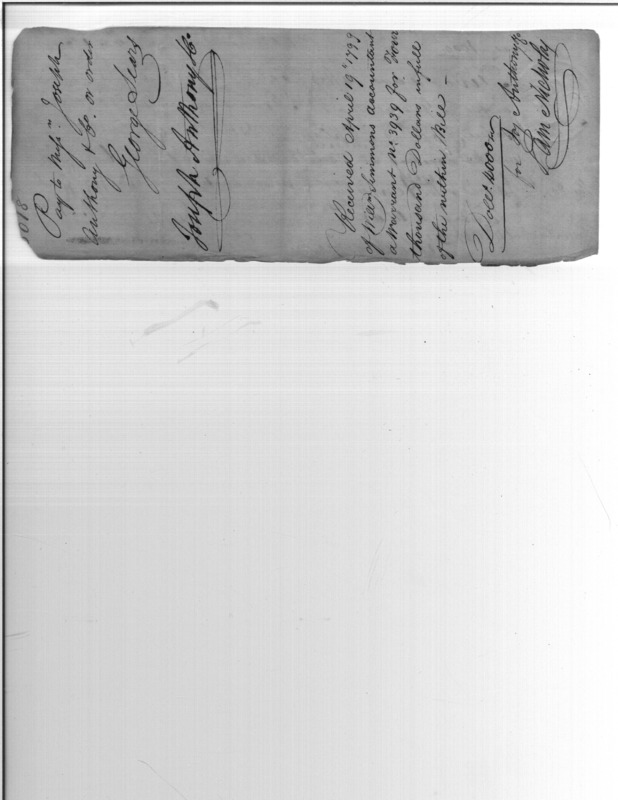 Pay to Messrs. Joseph
Anthony & Co. or order
George Sears
Joseph Anthony & Co.
Received April 19th 1793
of Willm Simmons Accountant
a Warrant No. 3939 for Four
thousand Dollars in full
of the within Bill –
Dolls. 4000
Jos Anthony